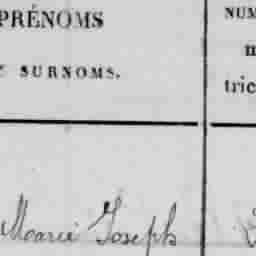 PRÉNOMS
SURNOMS.
NUM
tric
Marie Joseph